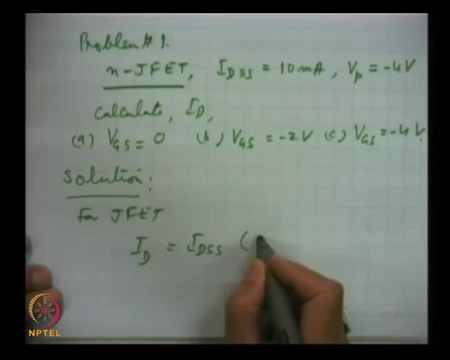 Problem # 1.
n-JFET, I_DSS = 10 mA, V_p = -4V
Calculate, I_D,
(a) V_GS = 0 (b) V_GS = -2V (c) V_GS = -4V.
Solution:
For JFET
I_D = I_DSS (
NPTEL